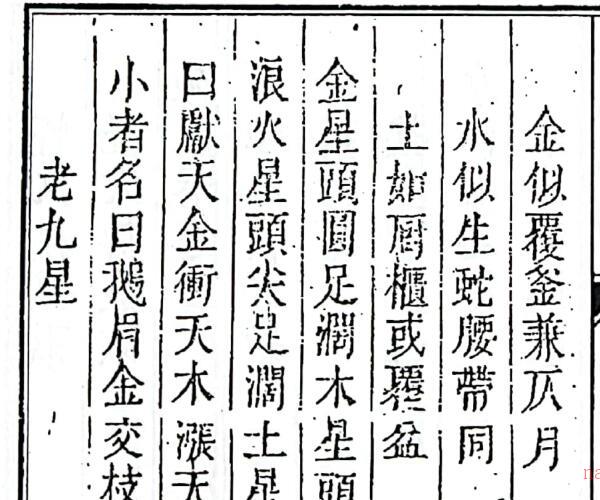 金似覆釜兼仄月
水似生蛇腰帶同
土如厨櫃或覆盆
金星頭圓足濶木星頭
浪火星頭尖足濶土星
曰獻天金衝天木漲天
小者名曰鵝眉金交枝
老九星